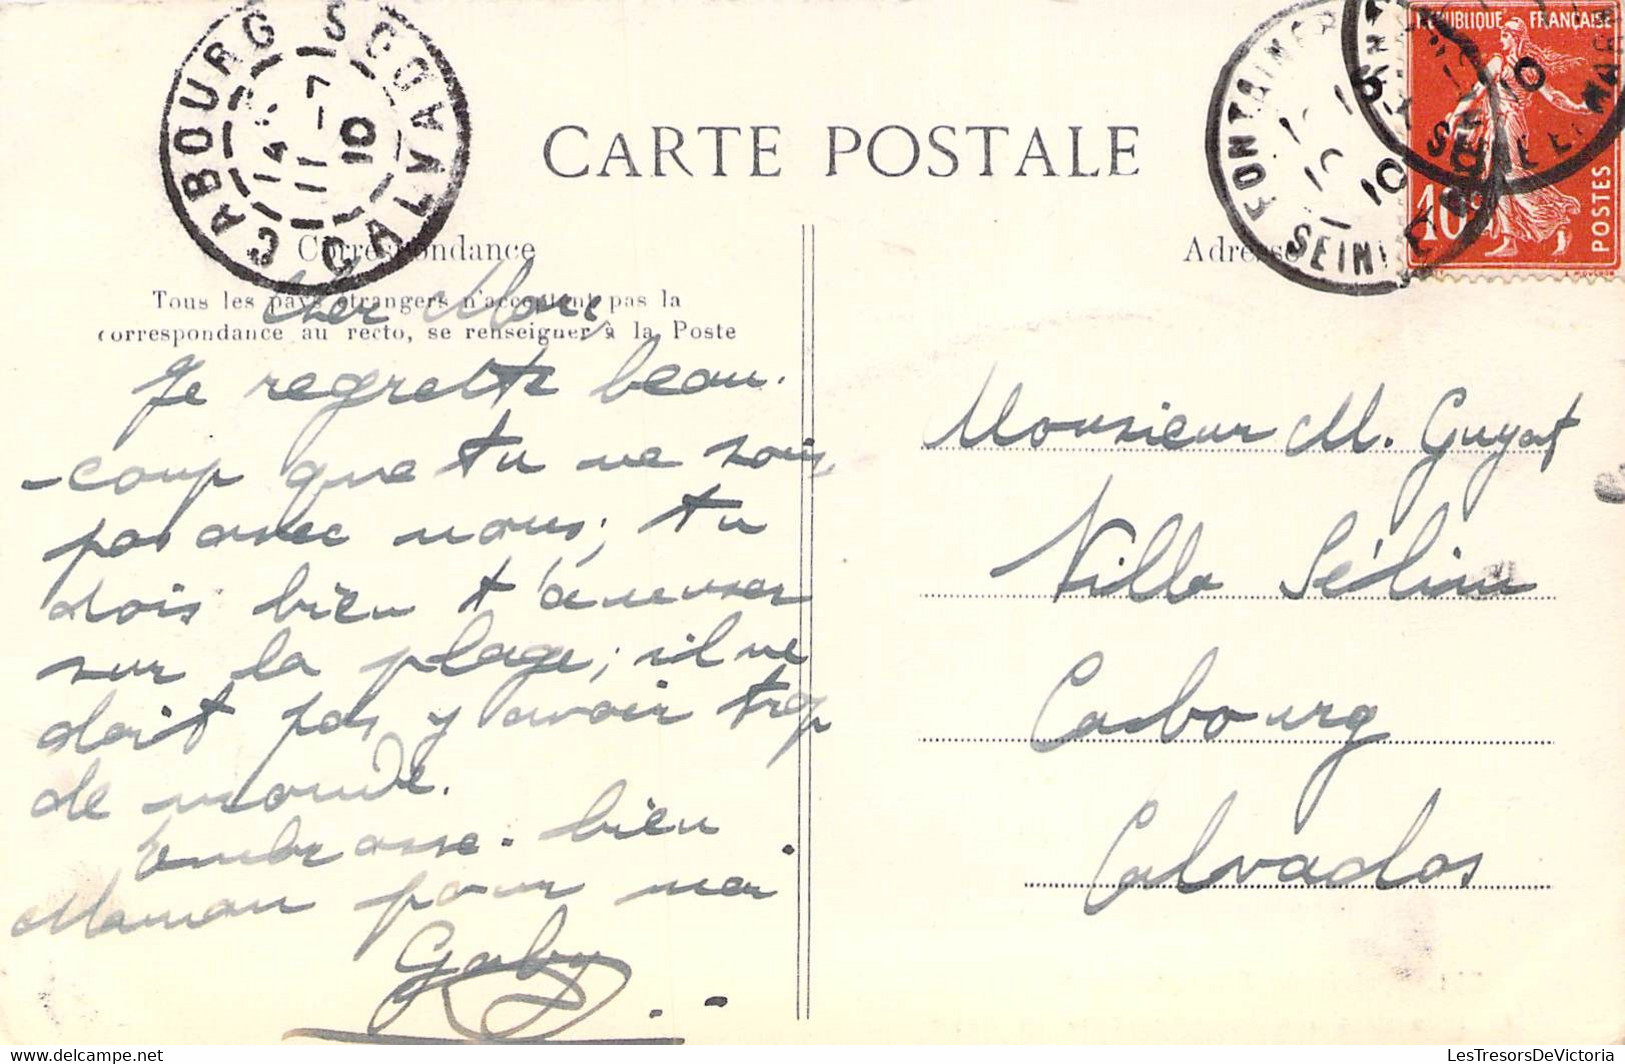 CARTE POSTALE
Correspondance
Tous les pays étrangers n'acceptent pas la
correspondance au recto, se renseigner à la Poste
Cher
Je regrette beau-
-coup que tu ne sois
pas avec nous; tu
dois bien t'amuser
sur la plage; il ne
doit pas y avoir trop
de monde.
Embrasse bien
Maman pour moi
Gaby
CABOURG
CALVADOS
11-7
10
Adresse
FONTAINEB
SEINE ET MAR
10
RÉPUBLIQUE FRANÇAISE
10c
POSTES
Monsieur M. Guyot
Villa
Cabourg
Calvados
www.delcampe.net
LesTresorsDeVictoria